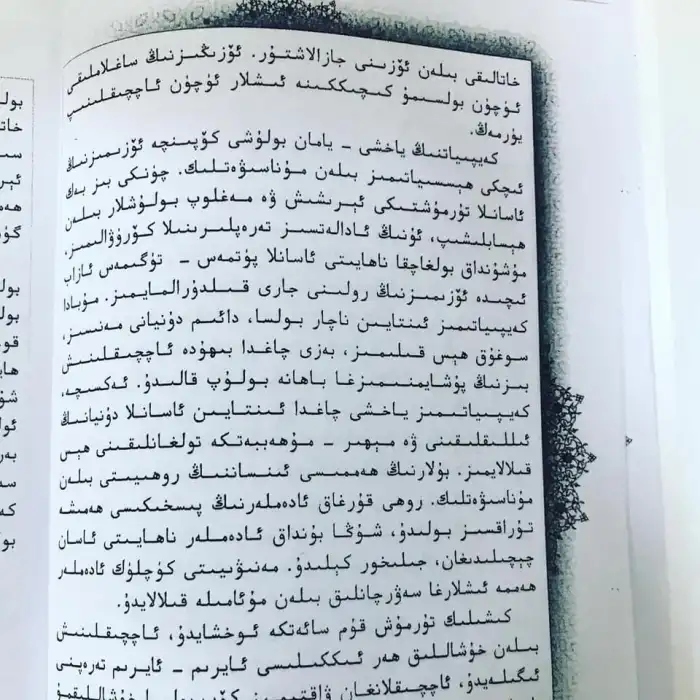 خاتالىقى بىلەن ئۆزىنى جازالاشتۇر. ئۆزىڭىزنىڭ ساغلاملىقى
ئۈچۈن بولسىمۇ كىچىككىنە ئىشلار ئۈچۈن ئاچچىقلىنىپ
يۈرمەڭ.
كەيپىياتنىڭ ياخشى – يامان بولۇشى كۆپىنچە ئۆزىمىزنىڭ
ئىچكى ھېسسىياتىمىز بىلەن مۇناسىۋەتلىك. چۈنكى بىز بەك
ئاسانلا تۇرمۇشتىكى ئېرىشىش ۋە مەغلۇپ بولۇشلار بىلەن
ھېسابلىشىپ، ئۇنىڭ ئادالەتسىز تەرەپلىرىنىلا كۆرۈۋالىمىز،
مۇشۇنداق بولغاچقا ناھايىتى ئاسانلا پۈتمەس – تۈگىمەس ئازاب
ئىچىدە ئۆزىمىزنىڭ رولىنى جارى قىلدۇرالمايمىز. مۇبادا
كەيپىياتىمىز ئىنتايىن ناچار بولسا، دائىم دۇنيانى مەنىسىز،
سوغۇق ھېس قىلىمىز، بەزى چاغدا بىھۇدە ئاچچىقلىنىش
بىزنىڭ پۇشايمىنىمىزغا باھانە بولۇپ قالىدۇ. ئەكسىچە،
كەيپىياتىمىز ياخشى چاغدا ئىنتايىن ئاسانلا دۇنيانىڭ
ئىللىقلىقىنى ۋە مېھىر – مۇھەببەتكە تولغانلىقىنى ھېس
قىلالايمىز. بۇلارنىڭ ھەممىسى ئىنساننىڭ روھىيىتى بىلەن
مۇناسىۋەتلىك. روھى قۇرغاق ئادەملەرنىڭ پىسخىكىسى ھەمىشە
تۇراقسىز بولىدۇ، شۇڭا بۇنداق ئادەملەر ناھايىتى ئاسان
چېچىلىدىغان، جىلىخور كېلىدۇ. مەنىۋىيىتى كۈچلۈك ئادەملەر
ھەممە ئىشلارغا سەۋرچانلىق بىلەن مۇئامىلە قىلالايدۇ.
كىشىلىك تۇرمۇش قۇم سائەتكە ئوخشايدۇ، ئاچچىقلىنىش
بىلەن خۇشاللىق ھەر ئىككىلىسى ئايرىم – ئايرىم تەرەپنى
ئىگىلەيدۇ، ئاچچىقلانغان ۋاقتىمىز كۆپ بولسا خۇشاللىقىمۇ